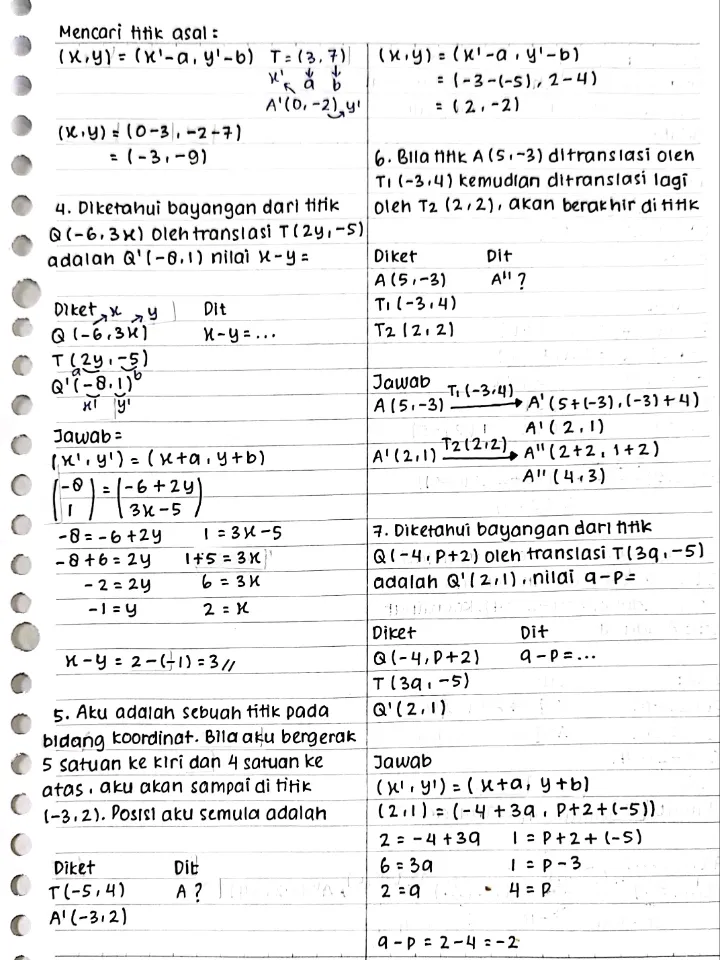 Mencari titik asal :
(x,y) = (x'-a, y'-b) T = (3,7)
x' a b
A'(0,-2) y'
(x,y) = (0-3, -2-7)
= (-3,-9)
4. Diketahui bayangan dari titik
Q(-6,3x) oleh translasi T(2y,-5)
adalah Q'(-8,1) nilai x-y=
Diket x y Dit
Q(-6,3x) x-y=...
T(2y,-5)
a b
Q'(-8,1)
x' y'
Jawab=
(x',y') = (x+a, y+b)
(-8 1) = (-6+2y 3x-5)
-8=-6+2y 1=3x-5
-8+6=2y 1+5=3x
-2=2y 6=3x
-1=y 2=x
x-y = 2-(-1) = 3//
5. Aku adalah sebuah titik pada
bidang koordinat. Bila aku bergerak
5 satuan ke kiri dan 4 satuan ke
atas, aku akan sampai di titik
(-3,2). Posisi aku semula adalah
Diket Dit
T(-5,4) A?
A'(-3,2)
(x,y) = (x'-a, y'-b)
= (-3-(-5), 2-4)
= (2,-2)
6. Bila titik A(5,-3) ditranslasi oleh
T1(-3,4) kemudian ditranslasi lagi
oleh T2(2,2), akan berakhir di titik
Diket Dit
A(5,-3) A"?
T1(-3,4)
T2(2,2)
Jawab
A(5,-3) T1(-3,4) → A'(5+(-3),(-3)+4)
A'(2,1)
A'(2,1) T2(2,2) → A"(2+2,1+2)
A"(4,3)
7. Diketahui bayangan dari titik
Q(-4,P+2) oleh translasi T(3q,-5)
adalah Q'(2,1), nilai q-p=
Diket Dit
Q(-4,P+2) q-p=...
T(3q,-5)
Q'(2,1)
Jawab
(x',y') = (x+a, y+b)
(2,1) = (-4+3q, P+2+(-5))
2=-4+3q 1=P+2+(-5)
6=3q 1=P-3
2=q 4=P
q-p = 2-4 = -2